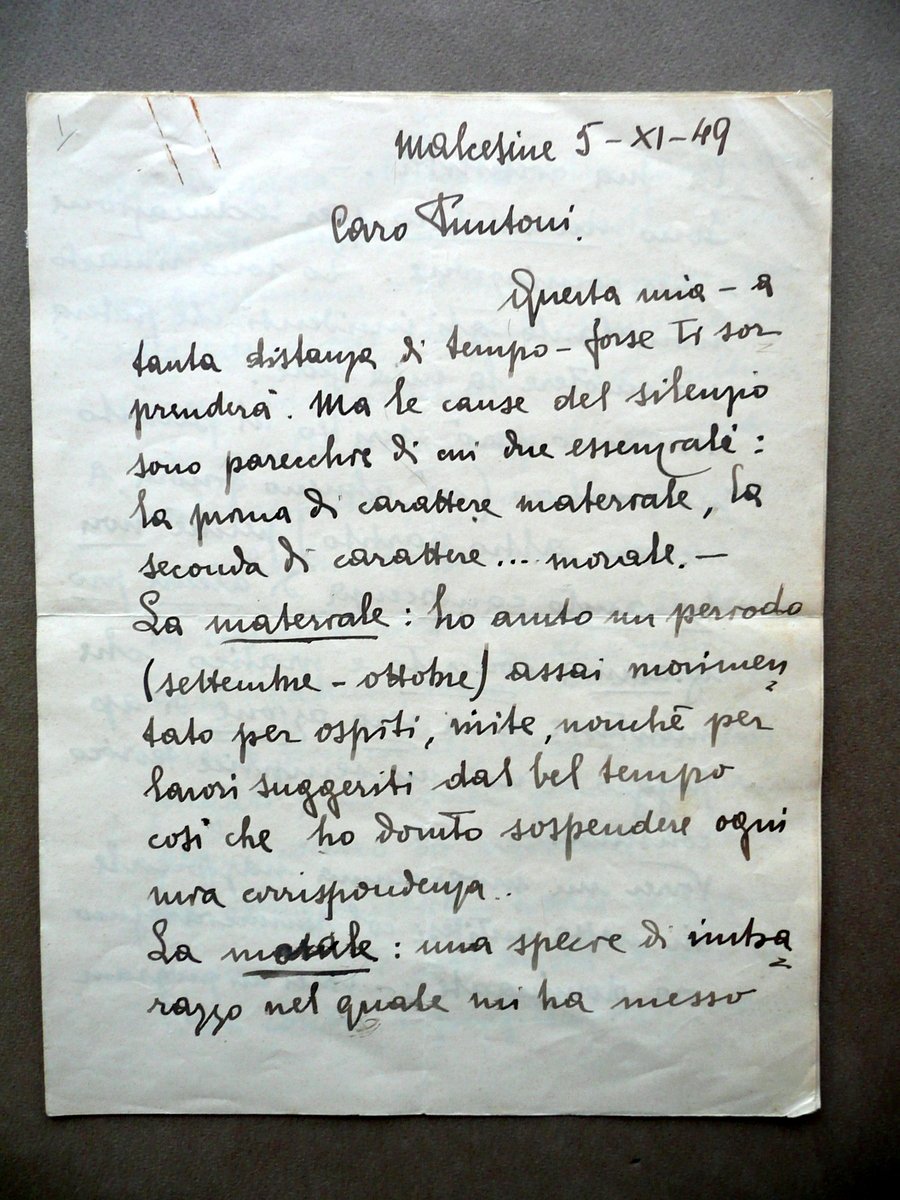 Malcesine 5-XI-49
Caro Puntoni.
Questa mia - a
tanta distanza di tempo - forse ti sor
prenderà. Ma le cause del silenzio
sono parecchie di cui due essenziali:
la prima di carattere materiale, la
seconda di carattere... morale. -
La materiale: ho avuto un periodo
(settembre - ottobre) assai movimen
tato per ospiti, visite, nonchè per
lavori suggeriti dal bel tempo
così che ho dovuto sospendere ogni
mia corrispondenza..
La morale: una specie di imba
razzo nel quale mi ha messo